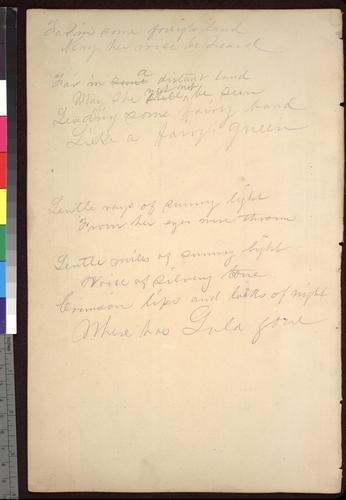 Far in some foreign land
May her voice be heard

Far in some a distant land
May she not be seen
Leading some fairy band
Like a fairy queen

Gentle rays of sunny light
From her eyes were thrown

Gentle smiles of sunny light
Voice of silvery tone
Crimson lips and locks of night
Where has Lula gone